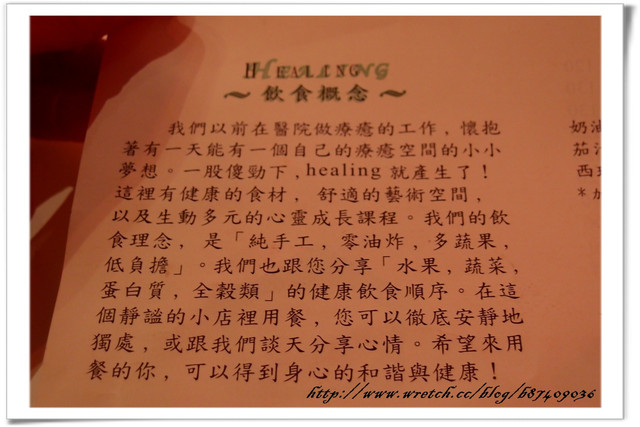 HEALING
～飲食概念～
我們以前在醫院做療癒的工作，懷抱
著有一天能有一個自己的療癒空間的小小
夢想。一股傻勁下，healing 就產生了！
這裡有健康的食材， 舒適的藝術空間，
以及生動多元的心靈成長課程。我們的飲
食理念， 是「純手工，零油炸，多蔬果，
低負擔」。我們也跟您分享「水果，蔬菜，
蛋白質，全穀類」的健康飲食順序。在這
個靜謐的小店裡用餐，您可以徹底安靜地
獨處，或跟我們談天分享心情。希望來用
餐的你，可以得到身心的和諧與健康！
奶油
茄汁
西班
http://www.wretch.cc/blog/b87409036